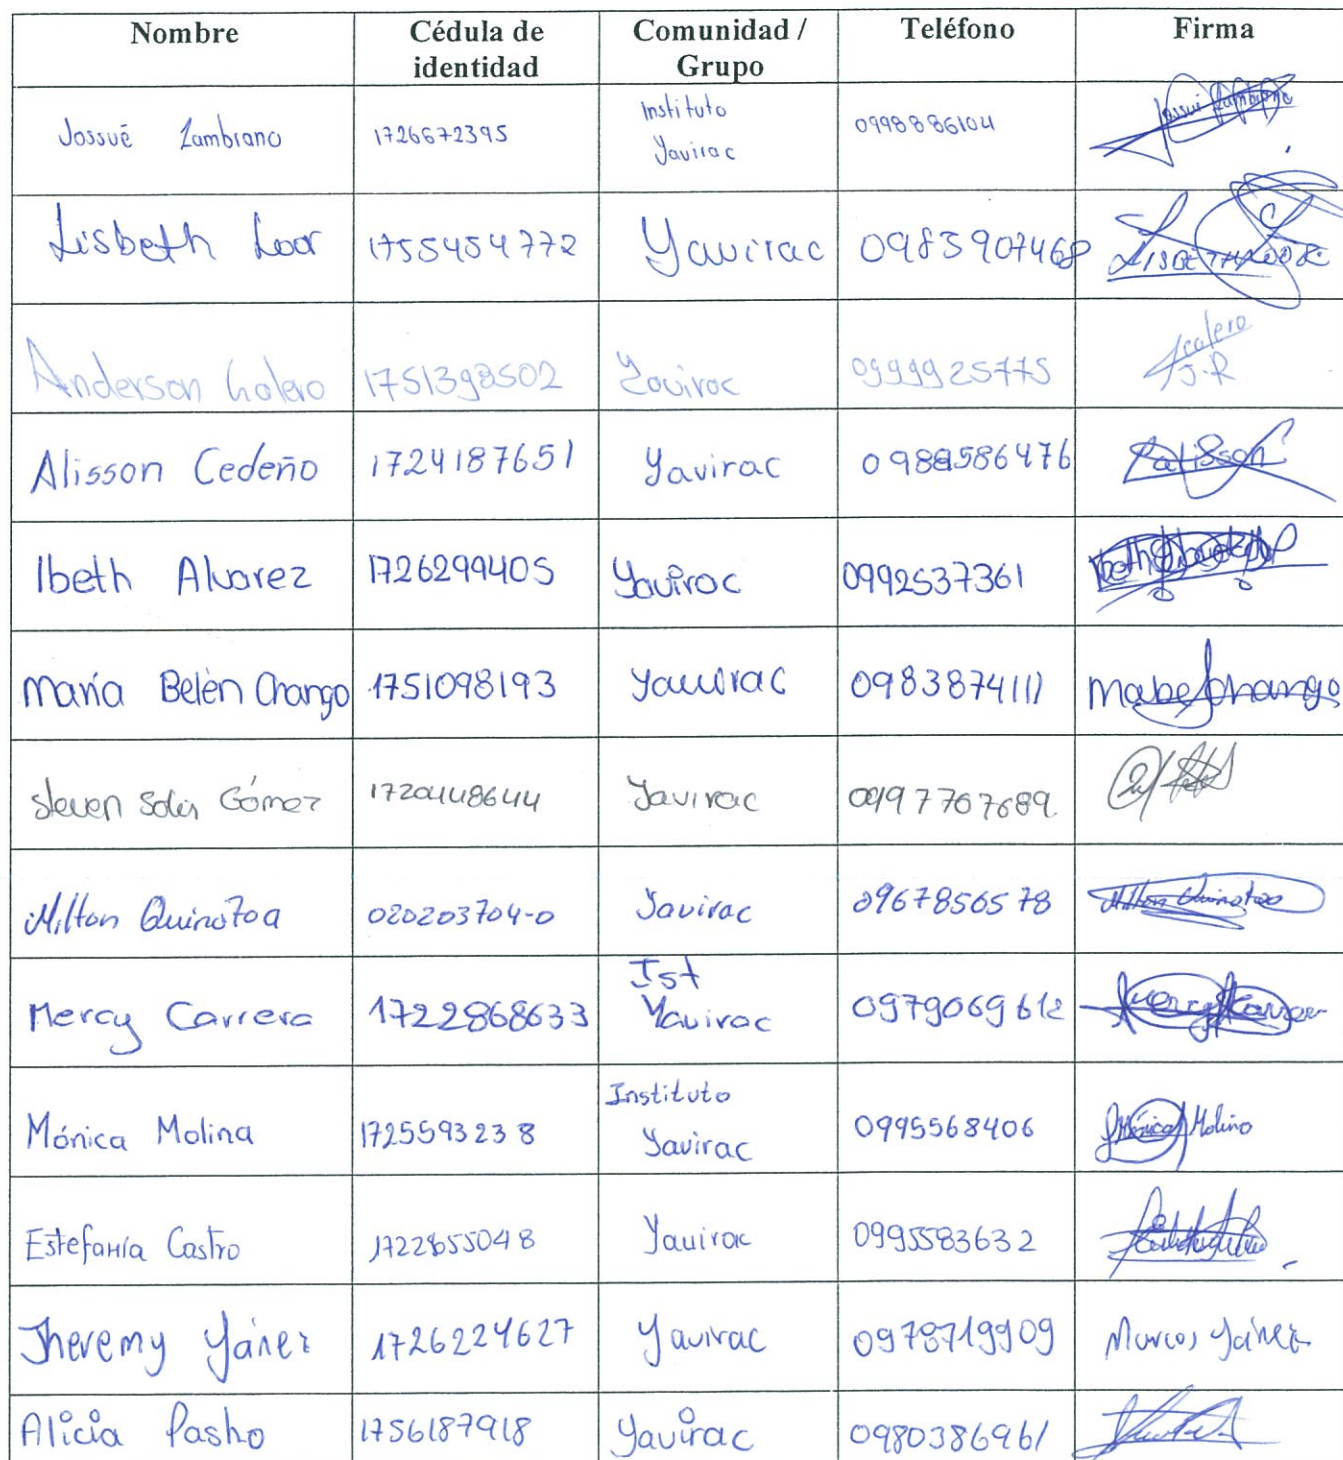 Nombre Cédula de identidad Comunidad / Grupo Teléfono Firma
Jossué Zambrano 1726672395 Instituto Yavirac 0998886104 Jossué Zambrano
Lisbeth Loor 1755454772 Yavirac 0983907468 LISBETH LOOR
Anderson Calero 1751398502 Yavirac 0999925775 Acalero J.R
Alisson Cedeño 1724187651 Yavirac 0988586476 Alisson
Ibeth Alvarez 1726299405 Yavirac 0992537361 Ibeth
María Belén Chango 1751098193 Yavirac 0983874111 Mabe Chango
Steven Solis Gómez 1720448644 Yavirac 0997767689.
Milton Quinatoa 020203704-0 Yavirac 0967856578 Milton Quinatoa
Mercy Carrera 1722868633 Ist Yavirac 0979069612 Mercy Carrera
Mónica Molina 1725593238 Instituto Yavirac 0995568406 Mónica Molina
Estefanía Castro 1722855048 Yavirac 0995583632
Jheremy Yánez 1726224627 Yavirac 0978719909 Marcos Yánez
Alicia Pasho 1756187918 Yavirac 0980386961